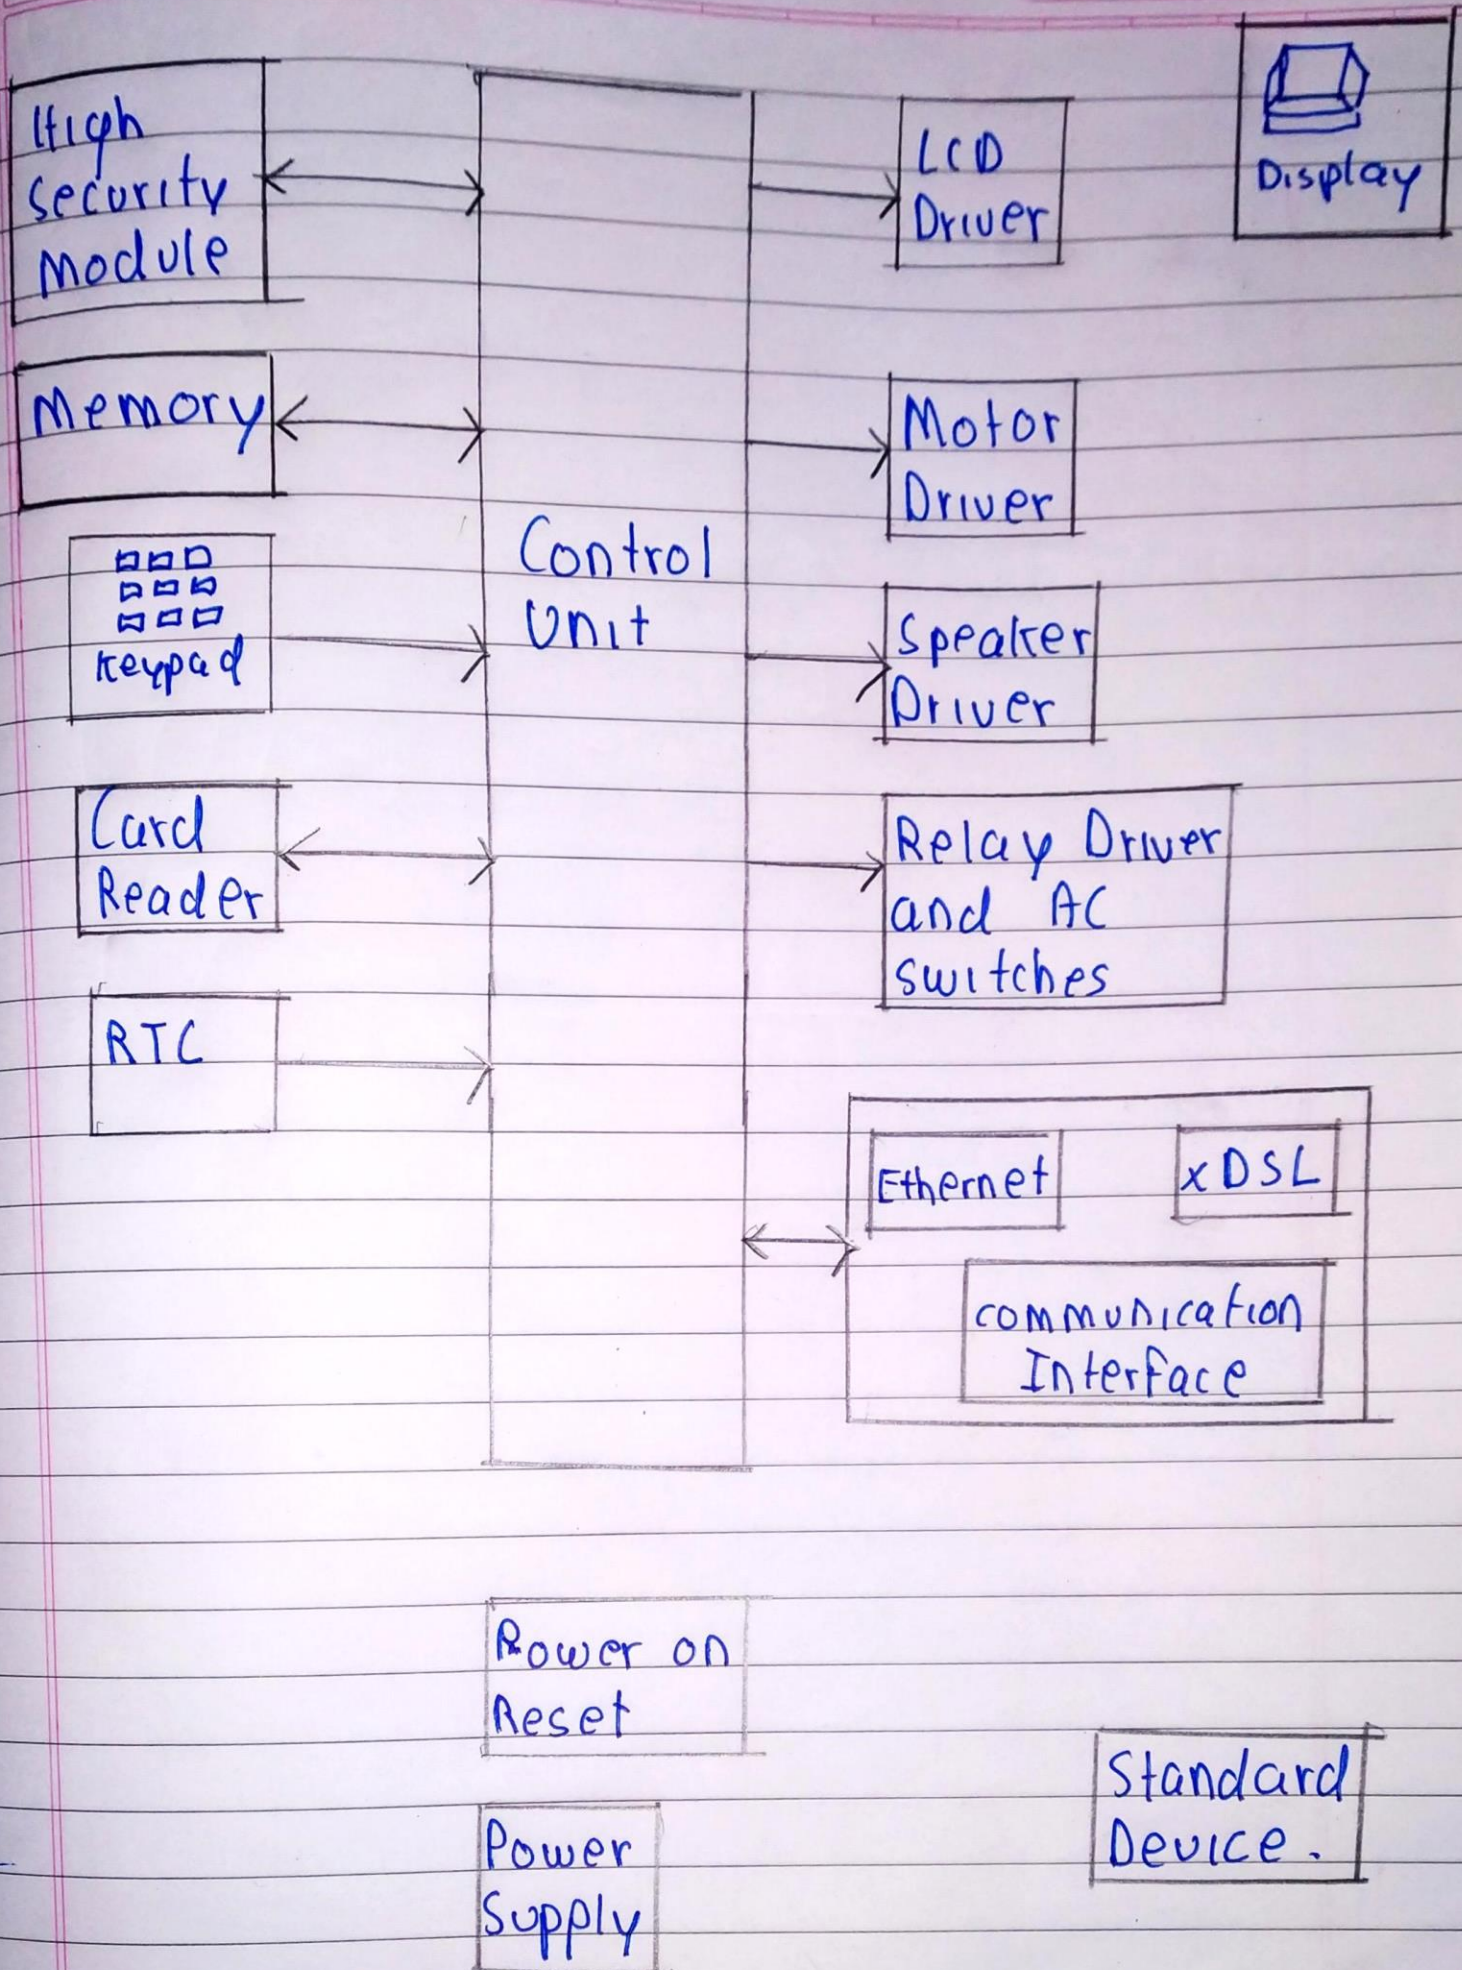 High
Security
Module
Memory
Keypad
Card
Reader
RTC
Control
Unit
LCD
Driver
Display
Motor
Driver
Speaker
Driver
Relay Driver
and AC
switches
Ethernet
xDSL
communication
Interface
Power on
Reset
Power
Supply
Standard
Device.